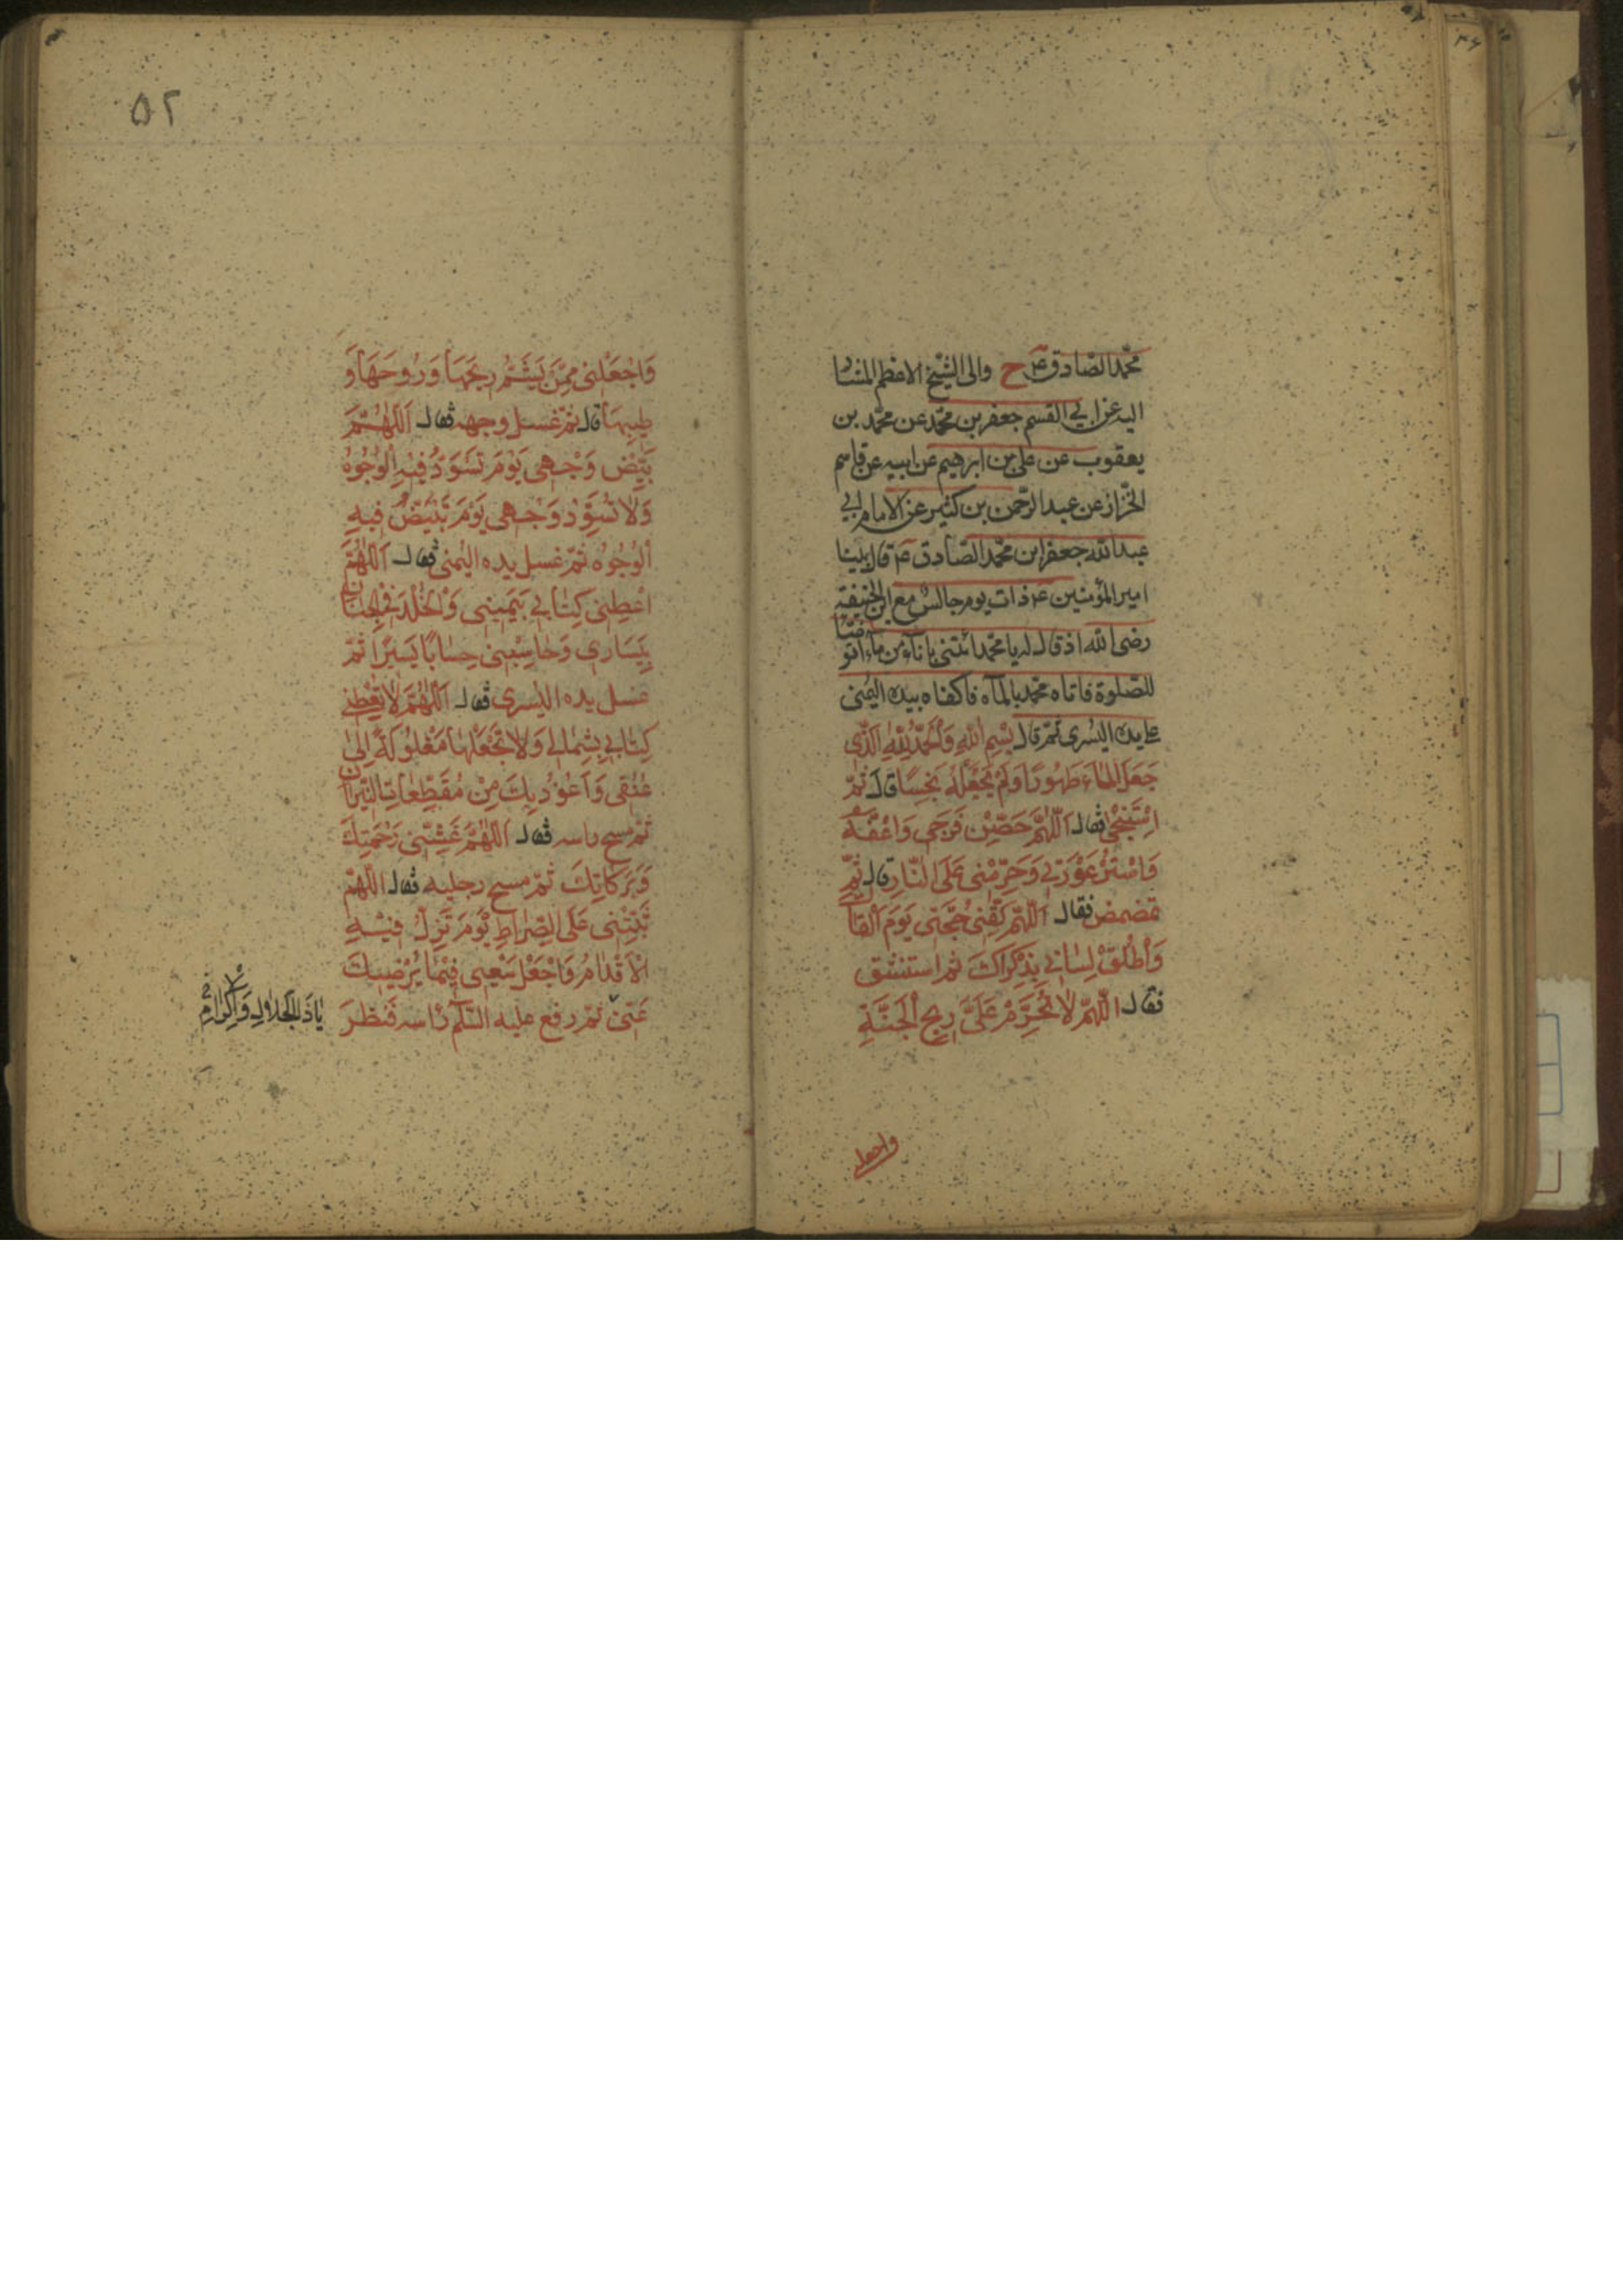 محمّد الصّادق ع ح والى الشيخ الاعظم المشار
اليه عن ابي القسم جعفر بن محمّد عن محمّد بن
يعقوب عن على بن ابرهيم عن ابيه عن قاسم
الخزاز عن عبد الرّحمن بن كثير عن الامام ابي
عبد الله جعفر ابن محمّد الصّادق ع قال بينا
امير المؤمنين ع ذات يوم جالس مع ابن الحنيفة
رضى الله اذ قال له يا محمّد ائتنى باناء من ماء اتوضّأ
للصّلوة فاتاه محمّد بالمآء فاكفاه بيده اليمنى
على يده اليسرى ثمّ قال بِسْمِ اللهِ وَالْحَمْدُ لِلّهِ الَّذى
جَعَلَ الْمٰاءَ طَهُورًا وَلَمْ يَجْعَلْهُ نَجِسًا قالَ ثمّ
اسْتَنْجىٰ فقال اَللّهُمَّ حَصِّنْ فَرْجى وَاعِفَّهُ
وَاسْتُرْ عَوْرَتى وَحَرِّمْنى عَلَى النّارِ قال ثمّ
تمضمض فقال اَللّهُمَّ لَقِّنى حُجَّتى يَوْمَ اَلْقاكَ
وَاَطْلِقْ لِسانى بِذِكْراكَ ثم استنشق
فقال اللّهُمَّ لاٰ تُحَرِّمْ عَلَىَّ ريحَ الْجَنَّةِ
واجعلنى
۵۲
وَاجْعَلْنى مِمَّنْ يَشَمُّ ريحَهٰا وَرُوحَهٰا وَ
طيبَهٰا قال ثمّ غسل وجهه فقال اَللّٰهُمَّ
بَيِّضْ وَجْهى يَوْمَ تَسْوَدُّ فيهِ الْوُجُوهُ
وَلاٰ تُسَوِّدْ وَجْهى يَوْمَ تَبْيَضُّ فيهِ
الْوُجُوهُ ثمّ غسل يده اليمنى فقال اَللّٰهُمَّ
اَعْطِنى كِتٰابى بِيَمينى وَالْخُلْدَ فى الْجِنٰانِ
بِيَسٰارى وَحٰاسِبْنى حِسٰابًا يَسيرًا ثمّ
غسل يده اليسرى فقال اَللّٰهُمَّ لاٰ تُعْطِنى
كِتٰابى بِشِمٰالى وَلاٰ تَجْعَلْهٰا مَغْلُولَةً اِلىٰ
عُنُقى وَاَعُوذُ بِكَ مِنْ مُقَطِّعٰاتِ النّيرٰانِ
ثمّ مسح راسه فقال اَللّٰهُمَّ غَشِّنى رَحْمَتِكَ
وَبَرَكٰاتِكَ ثمّ مسح رجليه فقال اللّٰهُمَّ
ثَبِّتْنى عَلَى الصِّرٰاطِ يَوْمَ تَزِلُّ فيهِ
الْاَقْدٰامُ وَاجْعَلْ سَعْيى فيمٰا يُرْضيكَ
عَنّى ثمّ رفع عليه السّلم رَاسه فَنظرَ
يٰا ذَالْجَلاٰلِ وَالْاِكْرٰامِ